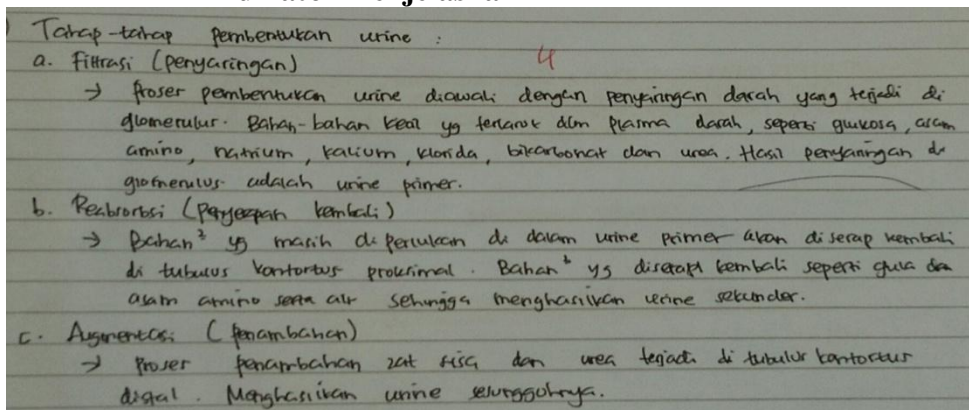 Tahap-tahap pembentukan urine :
4
a. Filtrasi (penyaringan)
→ Proses pembentukan urine diawali dengan penyaringan darah yang terjadi di
glomerulus. Bahan-bahan kecil yg terlarut dlm plasma darah, seperti glukosa, asam
amino, natrium, kalium, klorida, bikarbonat dan urea. Hasil penyaringan di
glomerulus adalah urine primer.
b. Reabsorbsi (Penyerapan kembali)
→ Bahan² yg masih diperlukan di dalam urine primer akan diserap kembali
di tubulus kontortus proksimal. Bahan² yg diserap kembali seperti gula dan
asam amino serta air sehingga menghasilkan urine sekunder.
c. Augmentasi (Penambahan)
→ Proses penambahan zat sisa dan urea terjadi di tubulus kontortus
distal. Menghasilkan urine sesungguhnya.